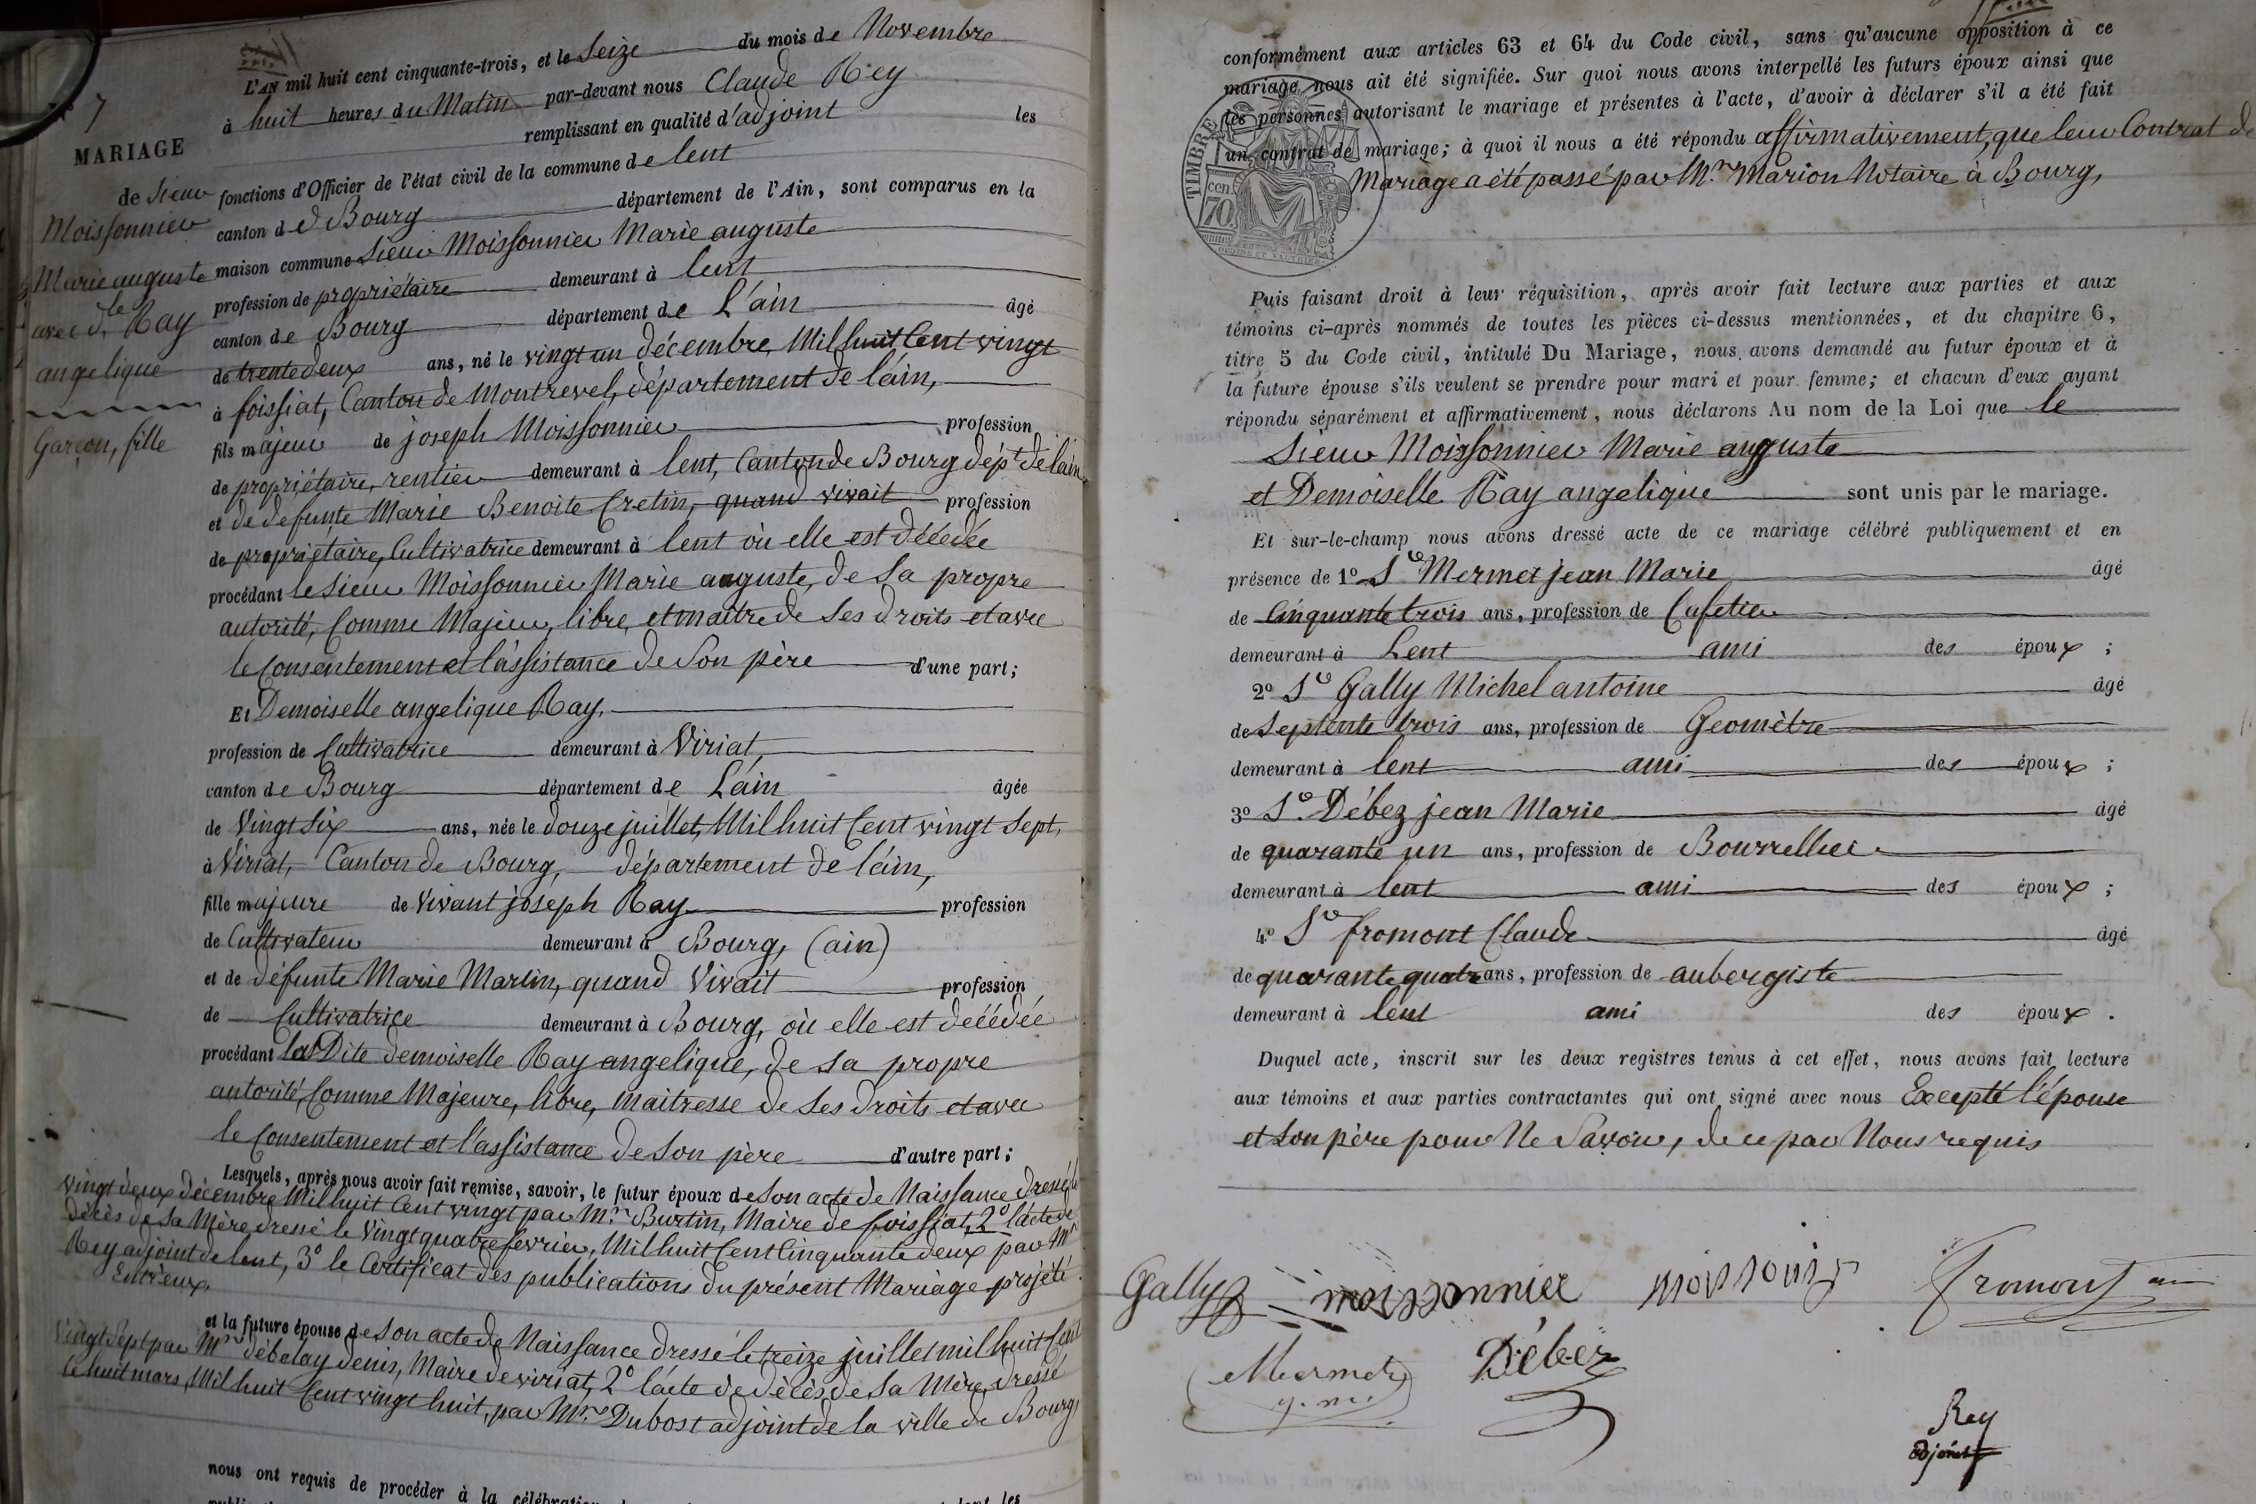 L'AN mil huit cent cinquante-trois, et le Seize du mois de Novembre
à huit heures du Matin par-devant nous Claude Rey
remplissant en qualité d'adjoint les
N° 7
MARIAGE
de Sieur
Moissonnier
Marie auguste
avec dlle Ray
angelique
Garçon, fille
fonctions d'Officier de l'état civil de la commune de lent
canton de Bourg département de l'Ain, sont comparus en la
maison commune Sieur Moissonnier Marie auguste
profession de propriétaire demeurant à lent
canton de Bourg département de L'ain âgé
de trente deux ans, né le vingt un décembre, Mil huit Cent vingt
à foissiat, Canton de Montrevel, département de l'ain,
fils majeur de joseph Moissonnier profession
de propriétaire, rentier demeurant à lent, Canton de Bourg dépt de l'ain
et de defunte Marie Benoite Cretin, quand vivait profession
de propriétaire, Cultivatrice demeurant à lent où elle est décédée
procédant le sieur Moissonnier Marie auguste, de sa propre
autorité, Comme Majeur, libre, et maitre de ses droits et avec
le Consentement et l'assistance de son père d'une part;
Et Demoiselle angelique Ray,
profession de Cultivatrice demeurant à Viriat,
canton de Bourg département de L'ain âgée
de Vingt Six ans, née le douze juillet, Mil huit Cent vingt sept,
à Viriat, Canton de Bourg, département de l'ain,
fille majeure de Vivant joseph Ray profession
de Cultivateur demeurant à Bourg, (ain)
et de défunte Marie Martin, quand Vivait profession
de Cultivatrice demeurant à Bourg, où elle est décédée
procédant la Dite demoiselle Ray angelique, de sa propre
autorité, Comme Majeure, libre, Maitresse de ses droits et avec
le Consentement et l'assistance de son père d'autre part;
Lesquels, après nous avoir fait remise, savoir, le futur époux de son acte de Naissance dressé le
vingt deux décembre Mil huit Cent vingt par Mr Burtin, Maire de foissiat, 2° l'acte de
décès de sa Mère, dressé le Vingt quatre fevrier, Mil huit Cent Cinquante deux par Mr
Rey adjoint de lent, 3° le Certificat des publications du présent Mariage projété
Entr'eux,
et la future épouse de son acte de Naissance dressé le treize juillet mil huit Cent
Vingt Sept par Mr débelay denis, Maire de viriat, 2° l'acte de décès de sa Mère, dressé
le huit mars, Mil huit Cent vingt huit, par Mr Dubost adjoint de la ville de Bourg
nous ont requis de procéder à la
conformément aux articles 63 et 64 du Code civil, sans qu'aucune opposition à ce
mariage nous ait été signifiée. Sur quoi nous avons interpellé les futurs époux ainsi que
les personnes autorisant le mariage et présentes à l'acte, d'avoir à déclarer s'il a été fait
un contrat de mariage; à quoi il nous a été répondu affirmativement, que leur Contrat de
Mariage a été passé par Mr Marion Notaire à Bourg,
TIMBRE
cen
70.
Puis faisant droit à leur réquisition, après avoir fait lecture aux parties et aux
témoins ci-après nommés de toutes les pièces ci-dessus mentionnées, et du chapitre 6,
titre 5 du Code civil, intitulé Du Mariage, nous avons demandé au futur époux et à
la future épouse s'ils veulent se prendre pour mari et pour femme; et chacun d'eux ayant
répondu séparément et affirmativement, nous déclarons Au nom de la Loi que le
Sieur Moissonnier Marie auguste
et Demoiselle Ray angelique sont unis par le mariage.
Et sur-le-champ nous avons dressé acte de ce mariage célébré publiquement et en
présence de 1° Sr Mermet jean Marie âgé
de Cinquante trois ans, profession de Cafetier
demeurant à Lent ami des époux ;
2° Sr Gally Michel antoine âgé
de septente trois ans, profession de Geomètre
demeurant à lent ami des époux ;
3° Sr Débez jean Marie âgé
de quarante un ans, profession de Bourrellier
demeurant à lent ami des époux ;
4° Sr fromont Claude âgé
de quarante quatre ans, profession de aubergiste
demeurant à lent ami des époux .
Duquel acte, inscrit sur les deux registres tenus à cet effet, nous avons fait lecture
aux témoins et aux parties contractantes qui ont signé avec nous Excepté l'épouse
et son père pour Ne Savoir, de ce par Nous requis
Gally moissonnier moissonier Fromont
Mermet Débez
Rey
adjoint